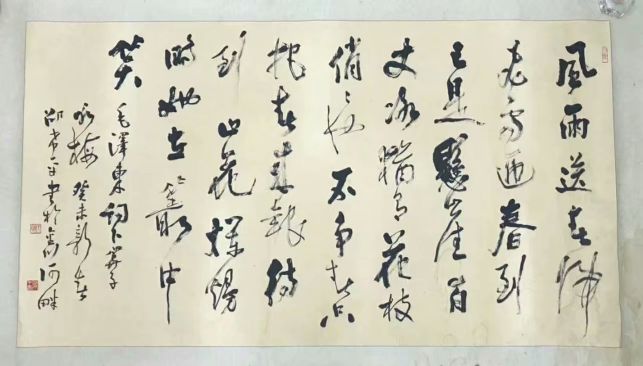 風雨送春歸
飛雪迎春到
已是懸崖百
丈冰猶有花枝
俏々也不爭春只
把春來報待
到山花爛熳
時她在叢中
笑
毛澤東詞卜算子
咏梅 癸未新春
書於 河畔